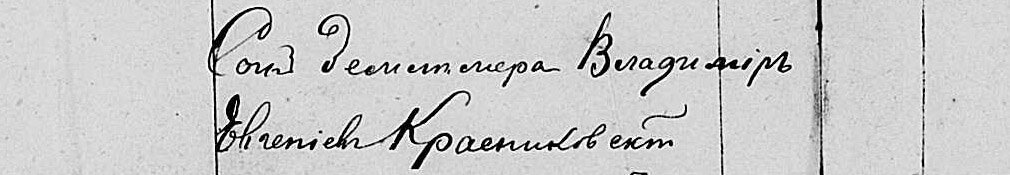 Сынъ землемера Владимiръ
Евгенiевъ Красниковскiй